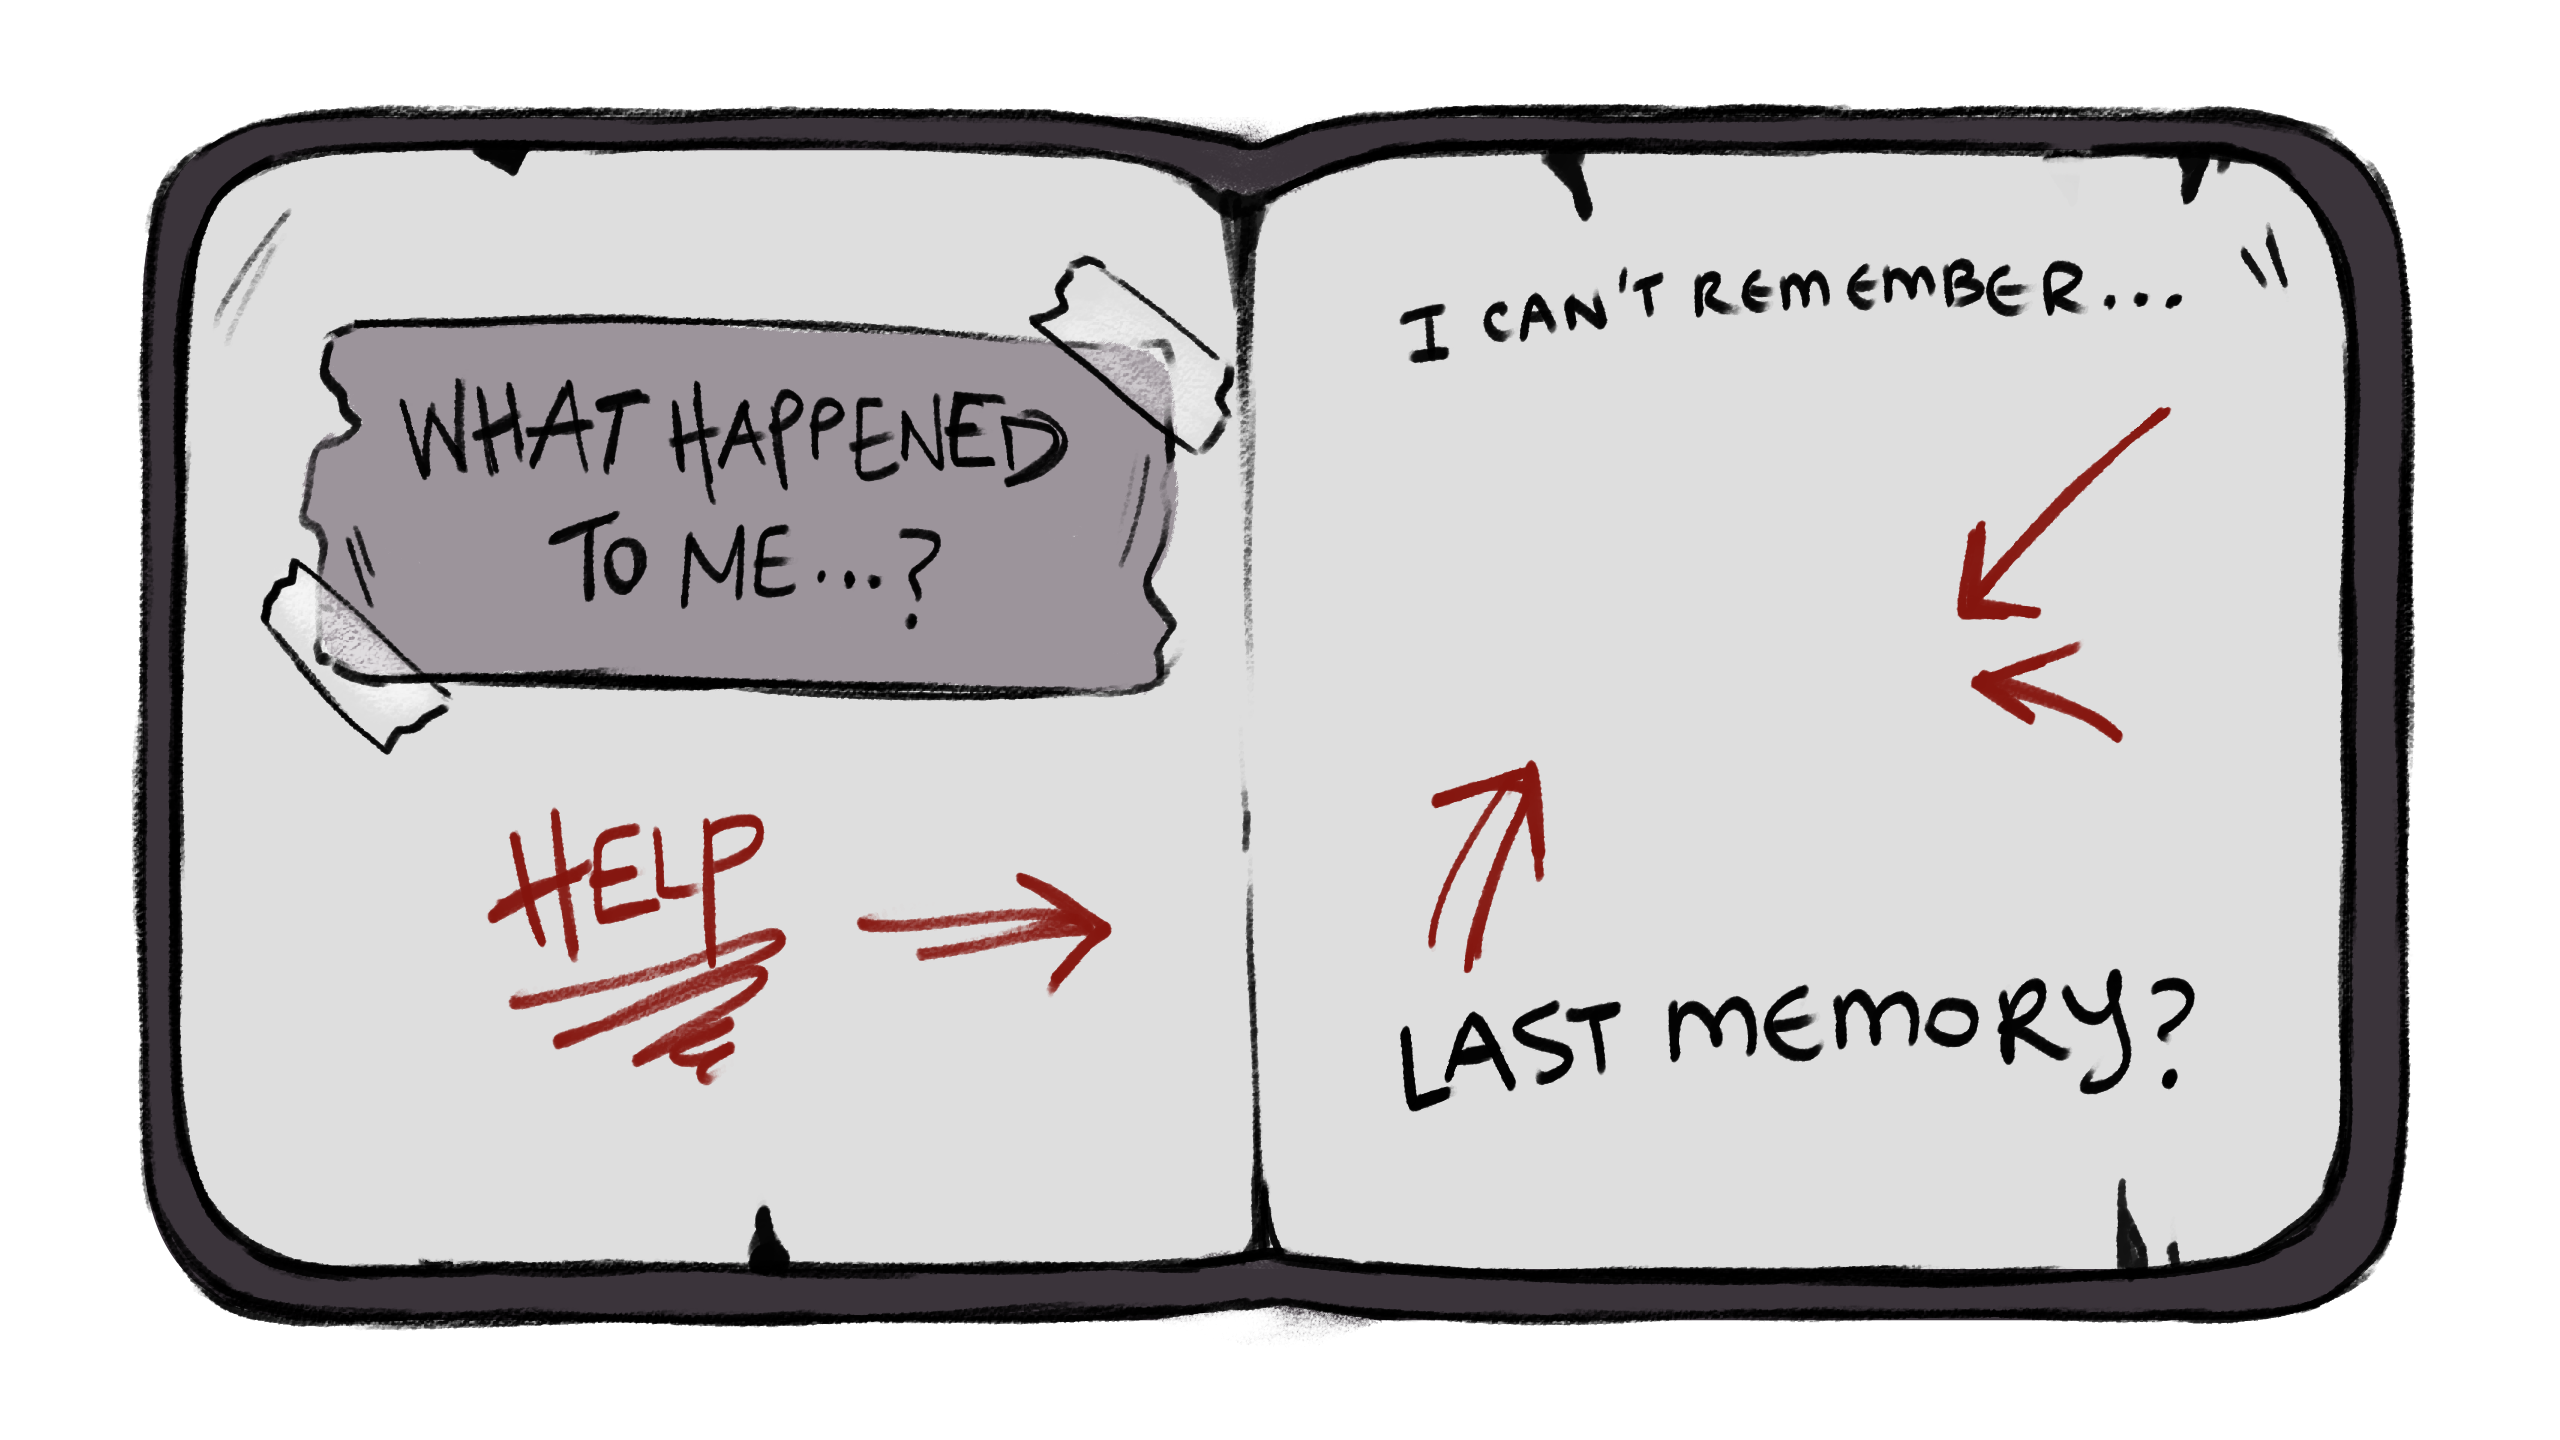 WHAT HAPPENED
TO ME...?
HELP
I CAN'T REMEMBER...
LAST MEMORY?